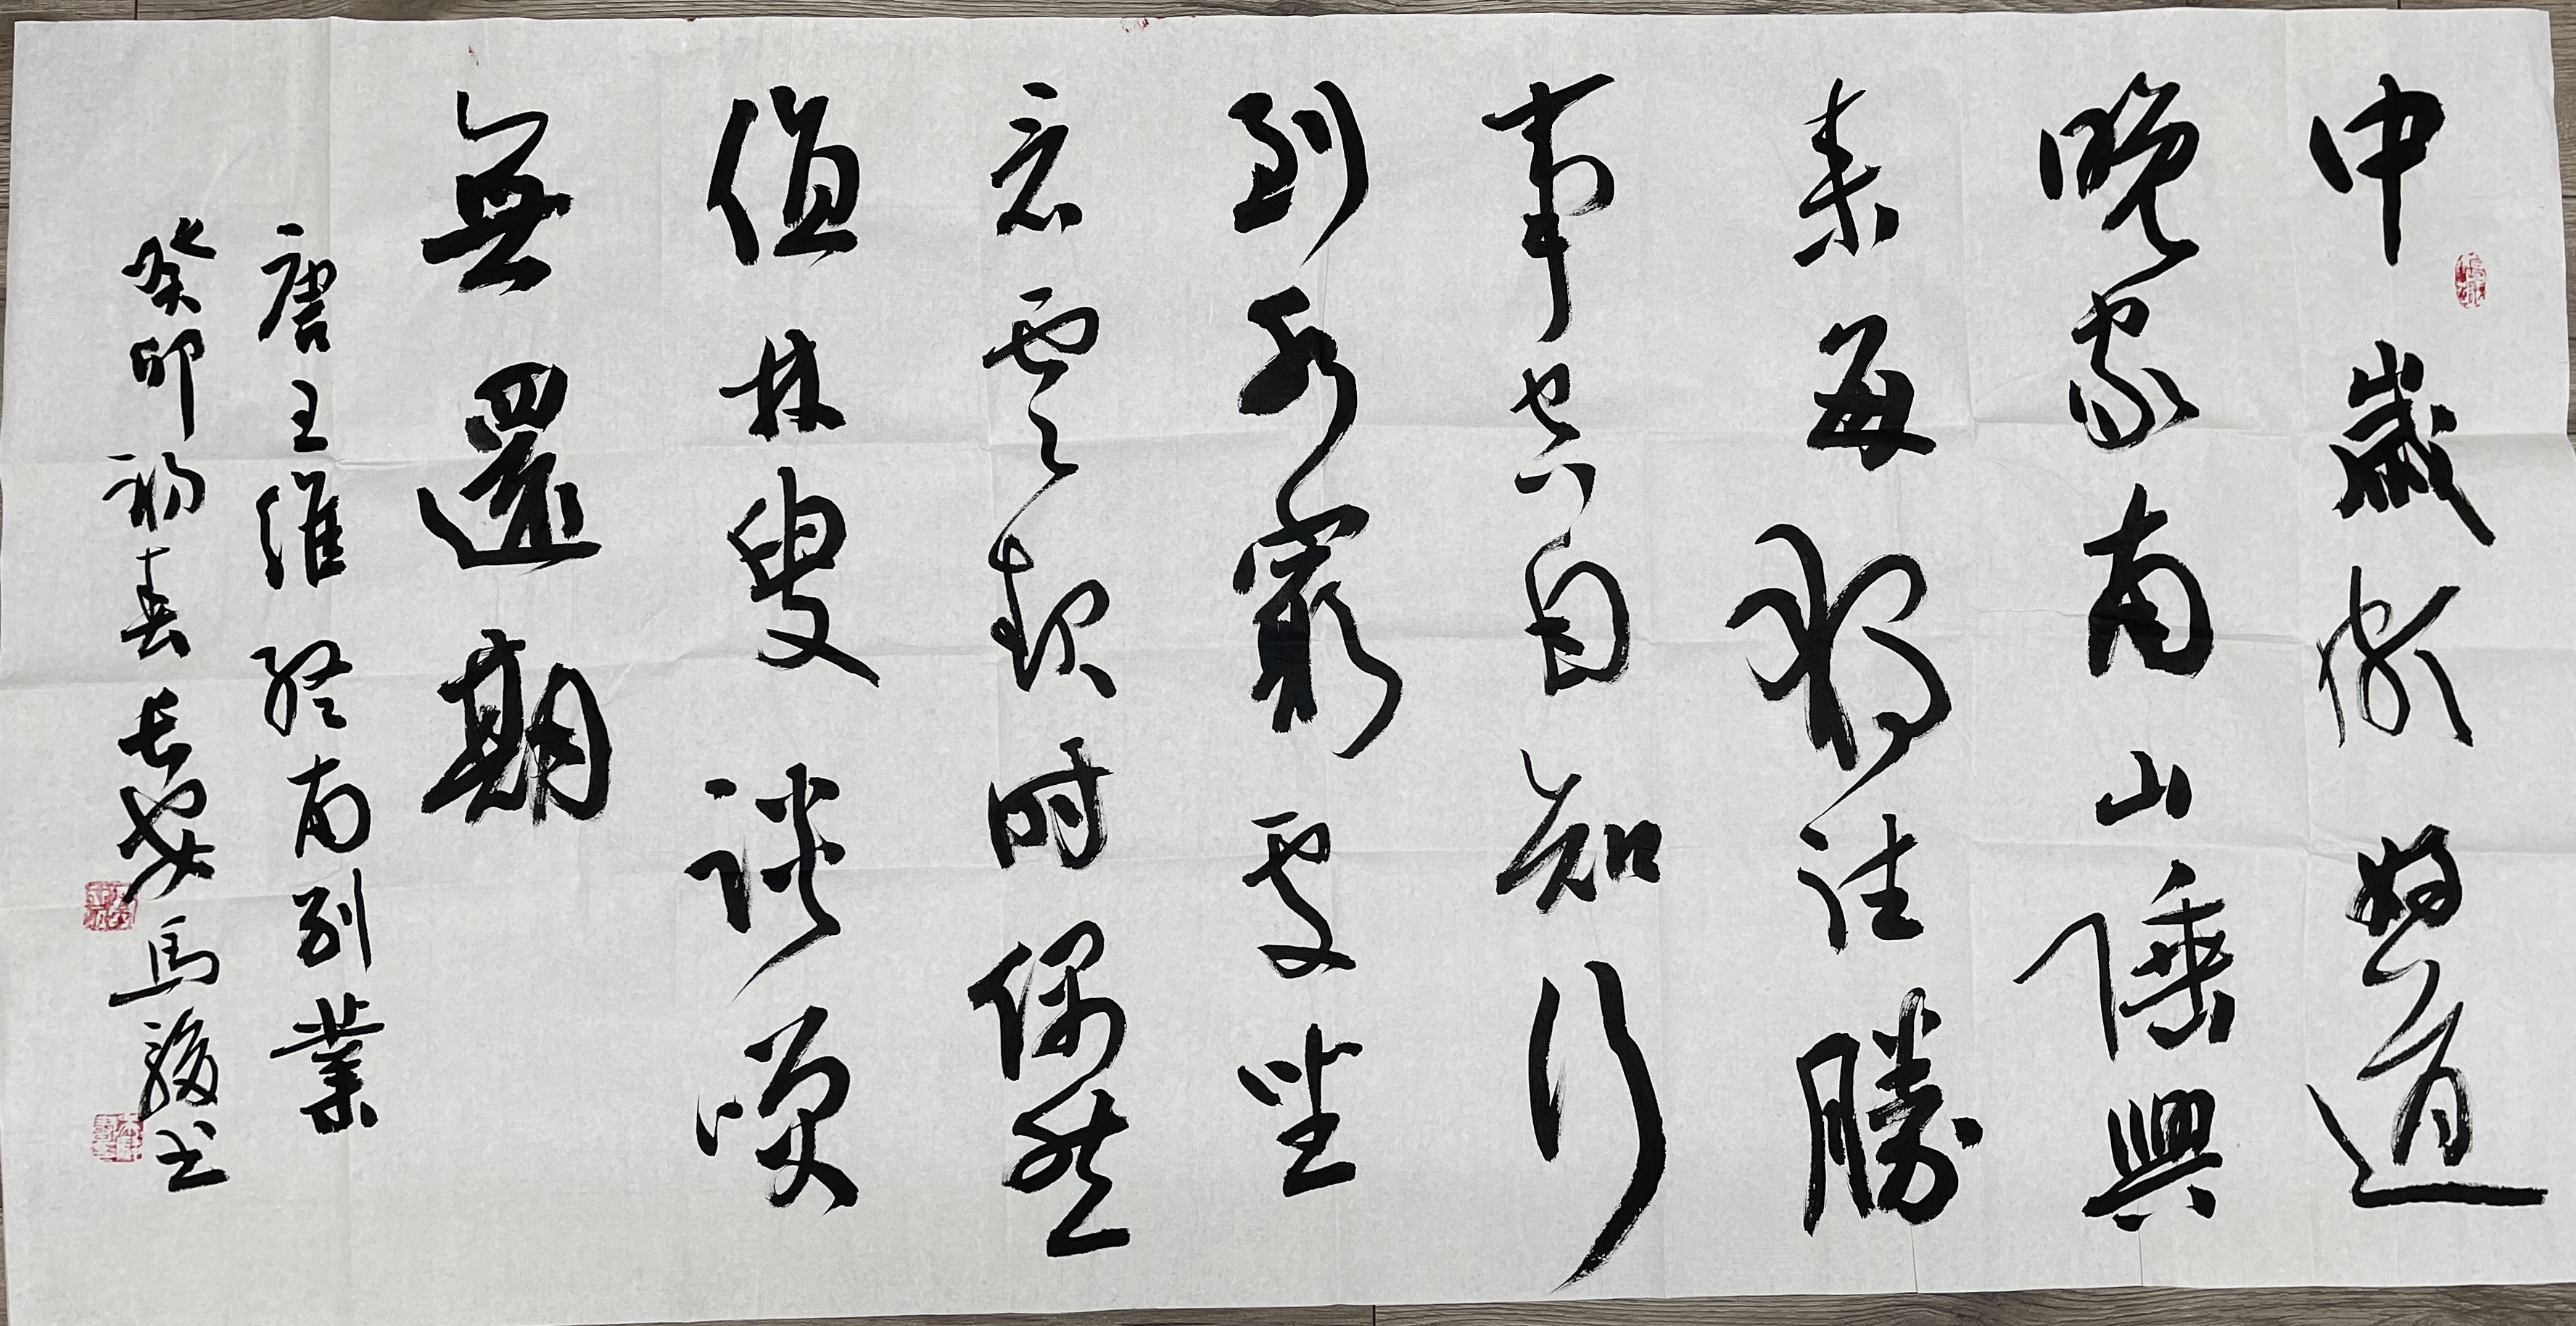 中歲頗好道
晚家南山陲興
來每獨往勝
事空自知行
到水窮處坐
看雲起時偶然
值林叟談笑
無還期
唐王維終南別業
癸卯初春長安馬駿书